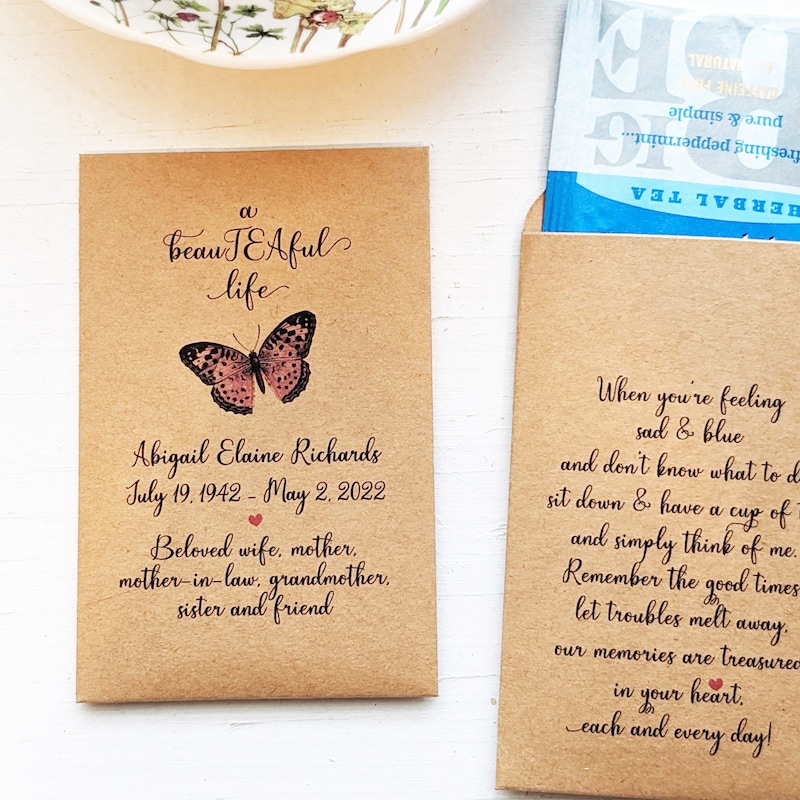 a
beauTEAful
life
Abigail Elaine Richards
July 19, 1942 - May 2, 2022
Beloved wife, mother,
mother-in-law, grandmother,
sister and friend
CAFFEINE
NATURAL
pure & simple
peppermint...
HERBAL TEA
When you're feeling
sad & blue
and don't know what to
sit down & have a cup of
and simply think of me.
Remember the good times
let troubles melt away,
our memories are treasured
in your heart,
each and every day!